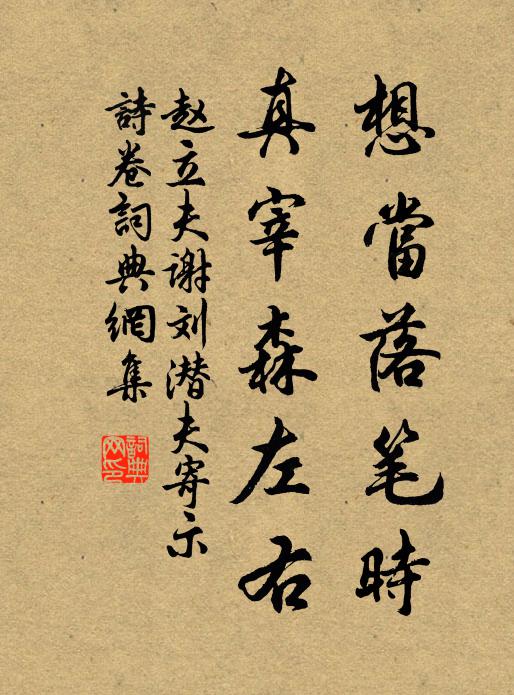 想當落笔時
真宰森左右
赵立夫谢刘潜夫寄示
詩卷詞典網集
詞典网印